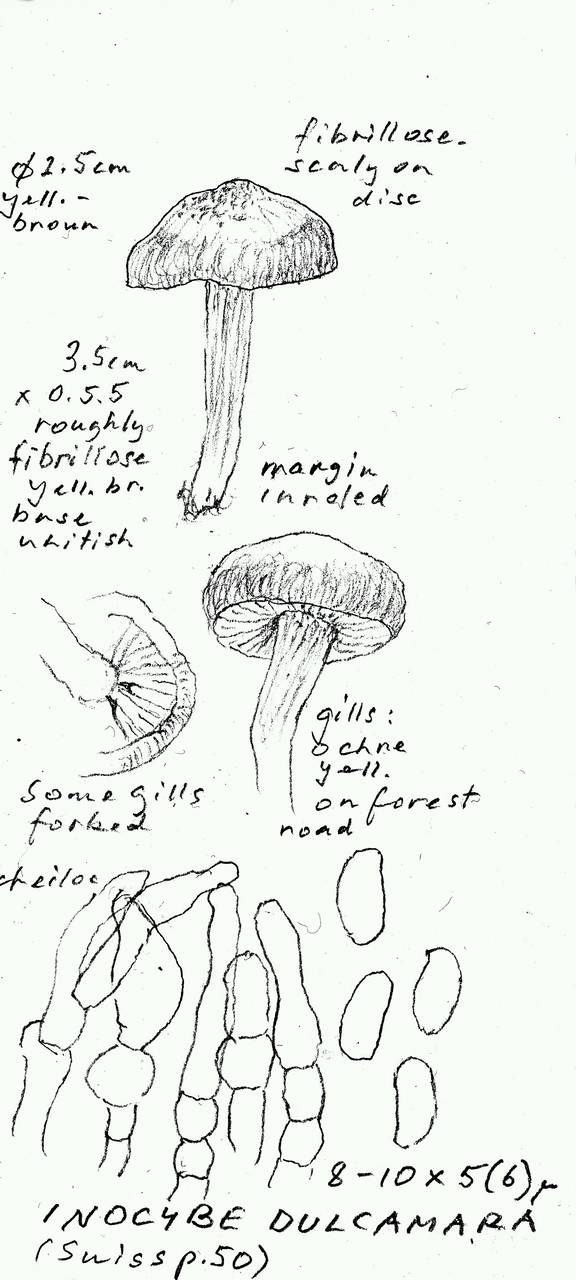 fibrillose.
scaly on
disc
ϕ2.5cm
yell.-
brown
3.5cm
x 0.5.5
roughly
fibrillose
yell. br.
base
whitish
margin
inroled
gills:
ochre
yell.
on forest
road
Some gills
forked
cheilos
8-10 x 5(6)μ
INOCYBE DULCAMARA
(Suiss p.50)